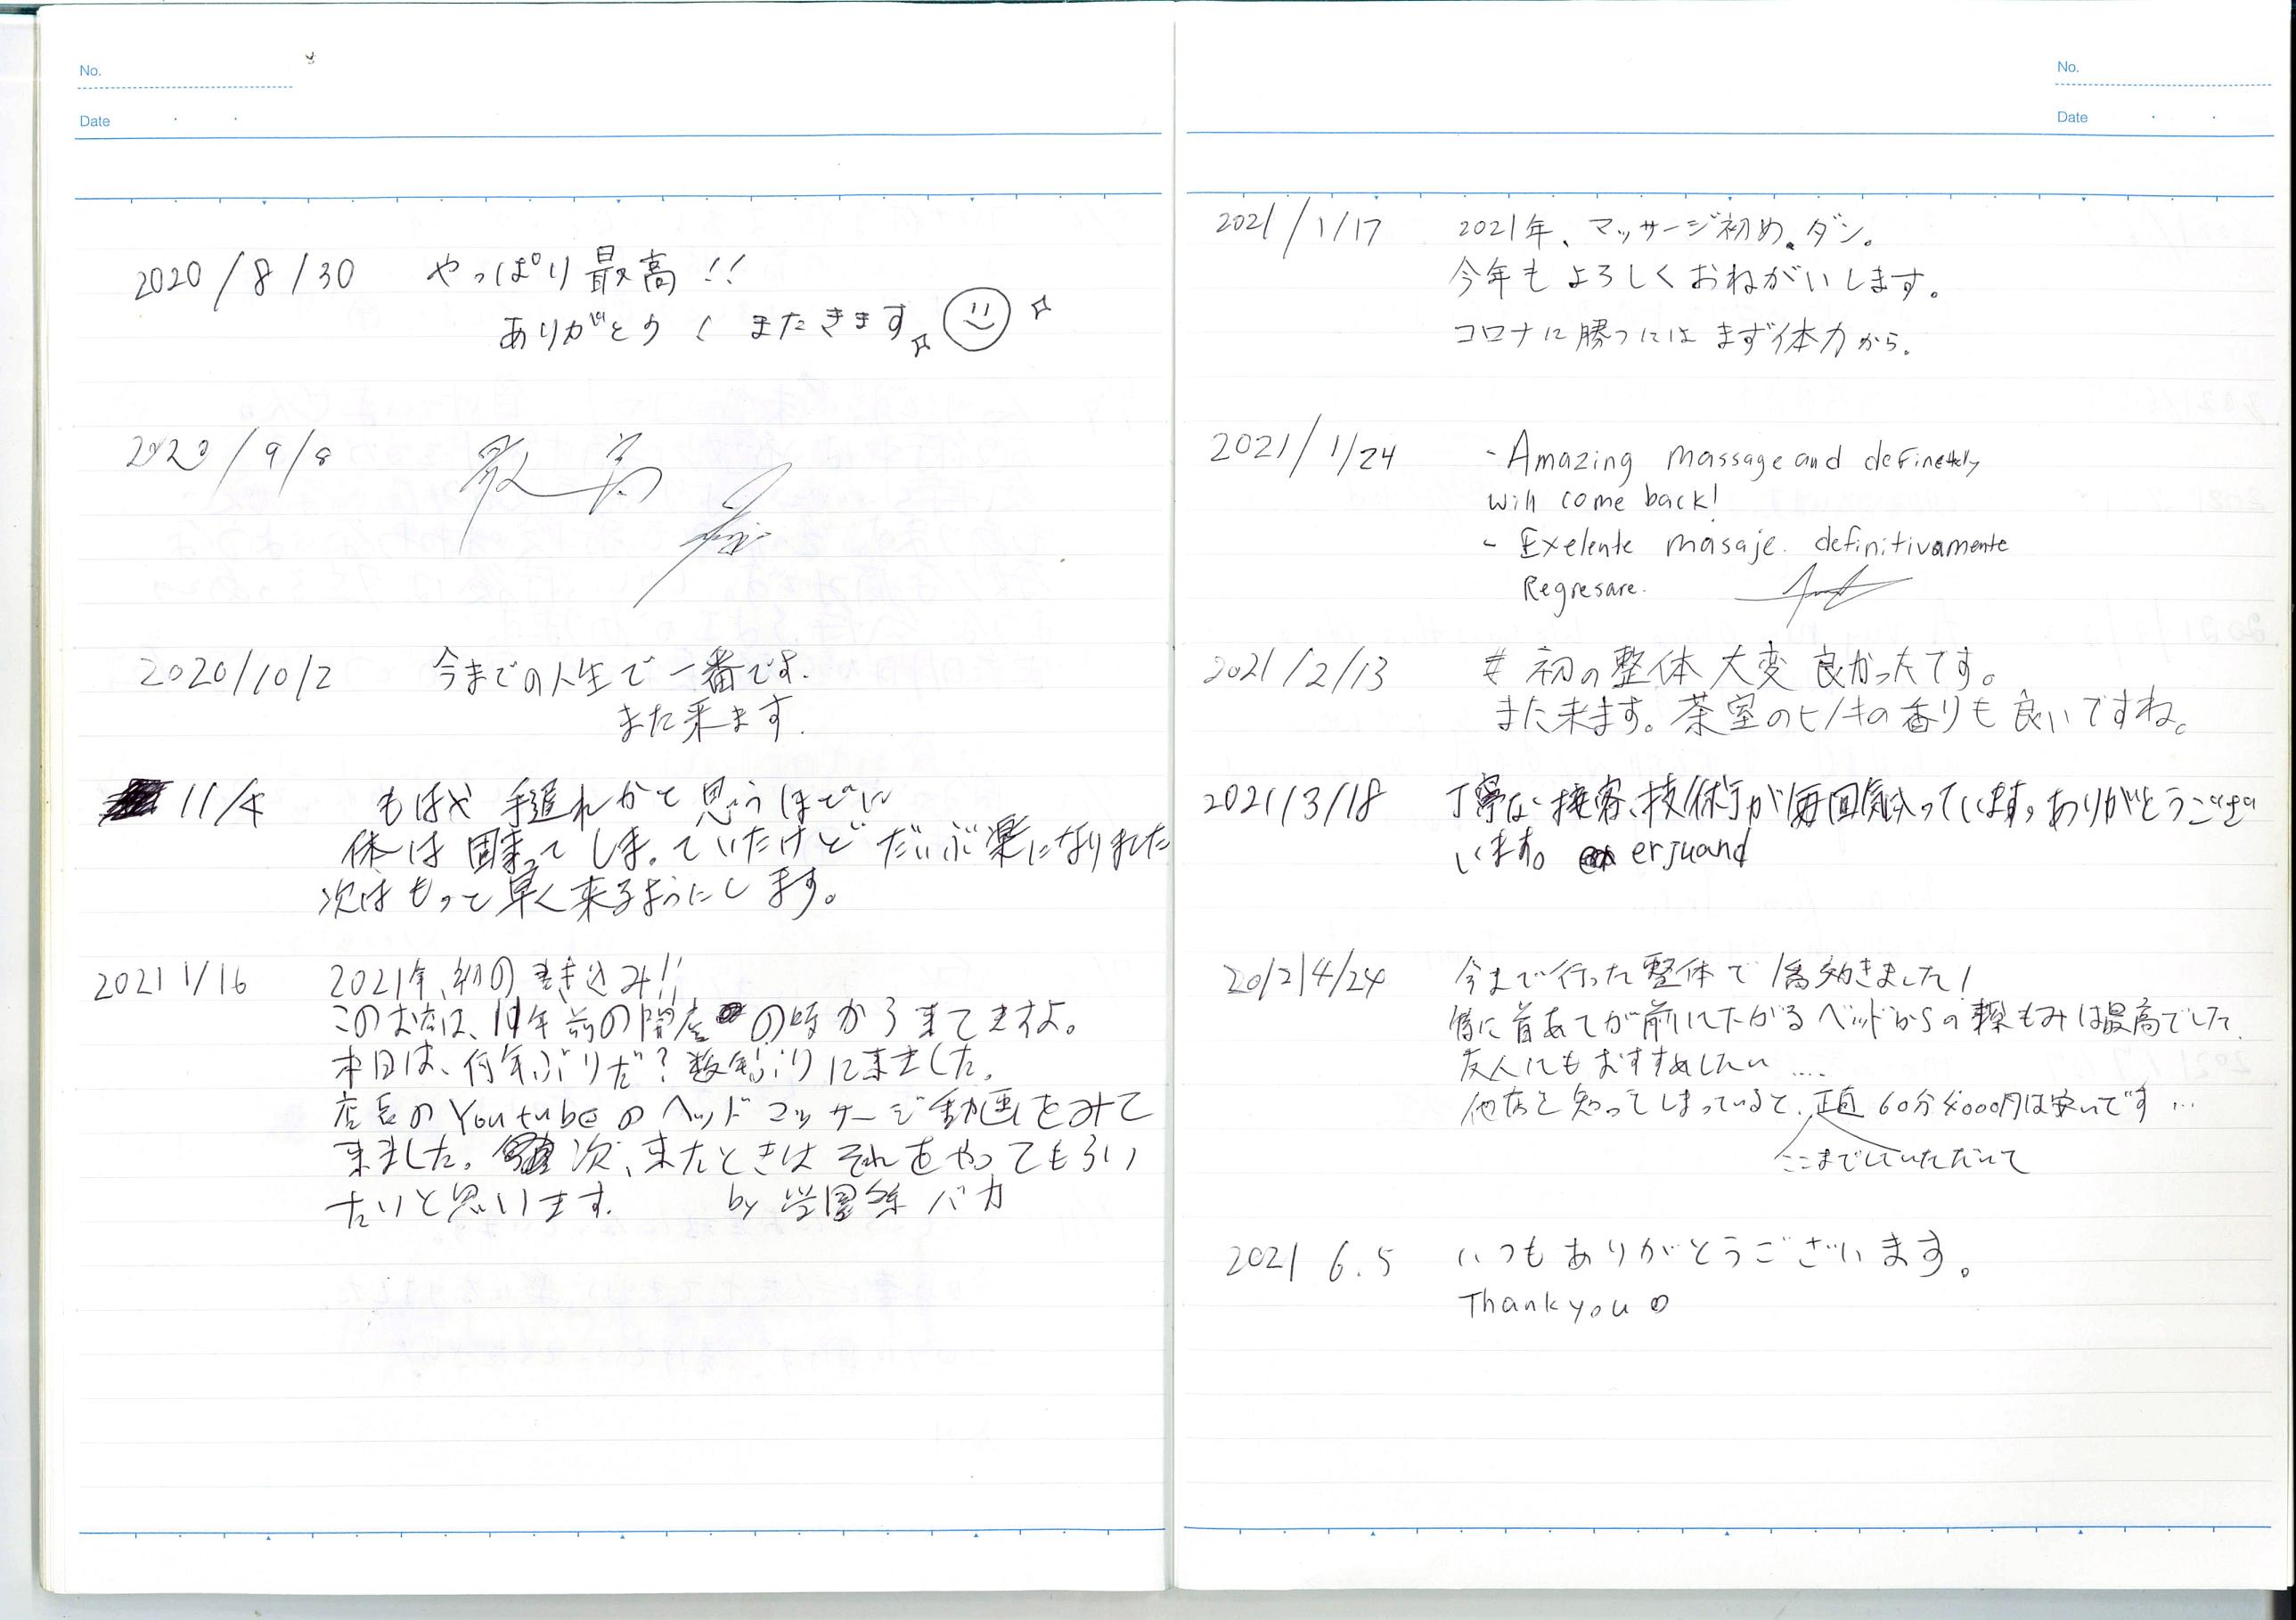 No.
Date
2020/8/30 やっぱり最高!!
ありがとう またきます
2020/9/8 最高
2020/10/2 今までの人生で一番です.
また来ます.
11/4 もはや手遅れかと思うほどに
体は固まってしまっていたけどだいぶ楽になりました
次はもっと早く来るようにします。
2021 1/16 2021年、初の書き込み!!
このお店は、11年前の開店の時から来てますよ。
本日は、何年ぶりだ?数年ぶりに来ました。
店長のYoutubeのヘッドマッサージ動画をみて
来ました。次、来たときはそれをやってもらい
たいと思います. by 学園祭バカ
No.
Date
2021/1/17 2021年、マッサージ初め。ダン。
今年もよろしくおねがいします。
コロナに勝つにはまず体力から.
2021/1/24 - Amazing massage and definetely
will come back!
- Exelente masaje. definitivamente
Regresare.
2021/2/13 初の整体大変良かったです。
また来ます。茶室のヒノキの香りも良いですね。
2021/3/18 丁寧な接客、技術が毎回気入っています。ありがとうござ
います。 erjuand
2021/4/24 今まで行った整体で1番効きました!
特に首あてが前に下がるベッドからの揉もみは最高でした.
友人にもおすすめしたい....
他店を知ってしまっていると、正直60分4000円は安いです...
ここまでしていただいて
2021 6.5 いつもありがとうございます。
Thank you